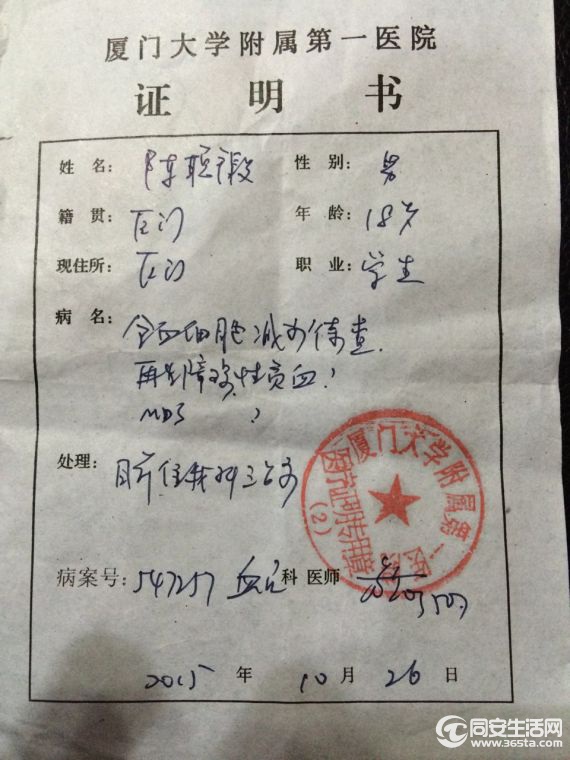 厦门大学附属第一医院
证明书
姓名: 陈 性别: 男
籍贯: 厦门 年龄: 18岁
现住所: 厦门 职业: 学生
病名: 全血细胞减少待查.
再生障碍性贫血?
MDS ?
处理: 目前住我科
厦门大学附属第一医院
医疗证明专用章
(2)
病案号: 547257 血液科 医师
2015年10月26日
同安生活网
www.365ta.com